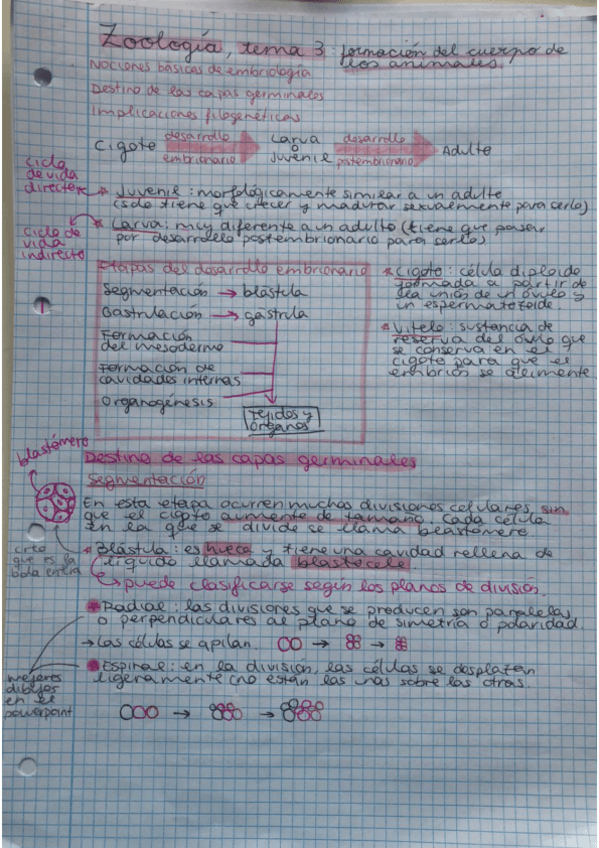 Zoología, tema 3: formación del cuerpo de
los animales
Nociones básicas de embriología
Destino de las capas germinales
Implicaciones filogenéticas
Cigote desarrollo embrionario Larva o Juvenil desarrollo postembrionario Adulte
ciclo de vida directe
* Juvenil: morfológicamente similar a un adulte
(solo tiene que crecer y madurar sexualmente para serlo)
ciclo de vida indirecto
* Larva: muy diferente a un adulto (tiene que pasar
por desarrollo postembrionario para serlo)
Etapas del desarrollo embrionario
Segmentación → blástula
Gastrulación → gástrula
Formación
del mesodermo
Formación de
cavidades internas
Organogénesis
Tejidos y
órganos
* Cigoto: célula diploide
formada a partir de
la unión de un óvulo y
un espermatozoide.
* Vitelo: sustancia de
reserva del óvulo que
se conserva en el
cigoto para que el
embrión se alimente
blastómero
Destino de las capas germinales
Segmentación
En esta etapa ocurren muchas divisiones celulares, sin
que el cigoto aumente de tamaño. Cada célula
en la que se divide se llama blastómero
creo
que es la
bola entera
* Blástula: es hueca y tiene una cavidad rellena de
líquido llamada blastocele
→ puede clasificarse según los planos de división.
* Radial: las divisiones que se producen son paralelas
o perpendiculares al plano de simetría o polaridad
→ Las células se apilan.
* Espiral: en la división, las células se desplazan
ligeramente (no están las unas sobre las otras.
mejores
dibujos
en el
powerpoint